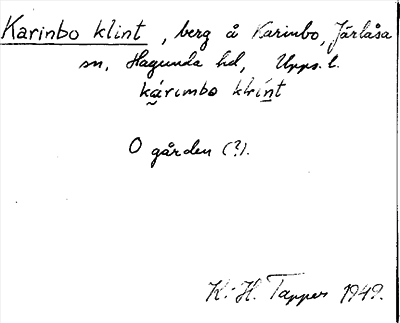 Karinbo klint, berg å Karinbo, Järlåsa
sn, Hagunda hd, Upps. l.
kárimbo klint
O gården (?).
K.-H. Tapper 1949.